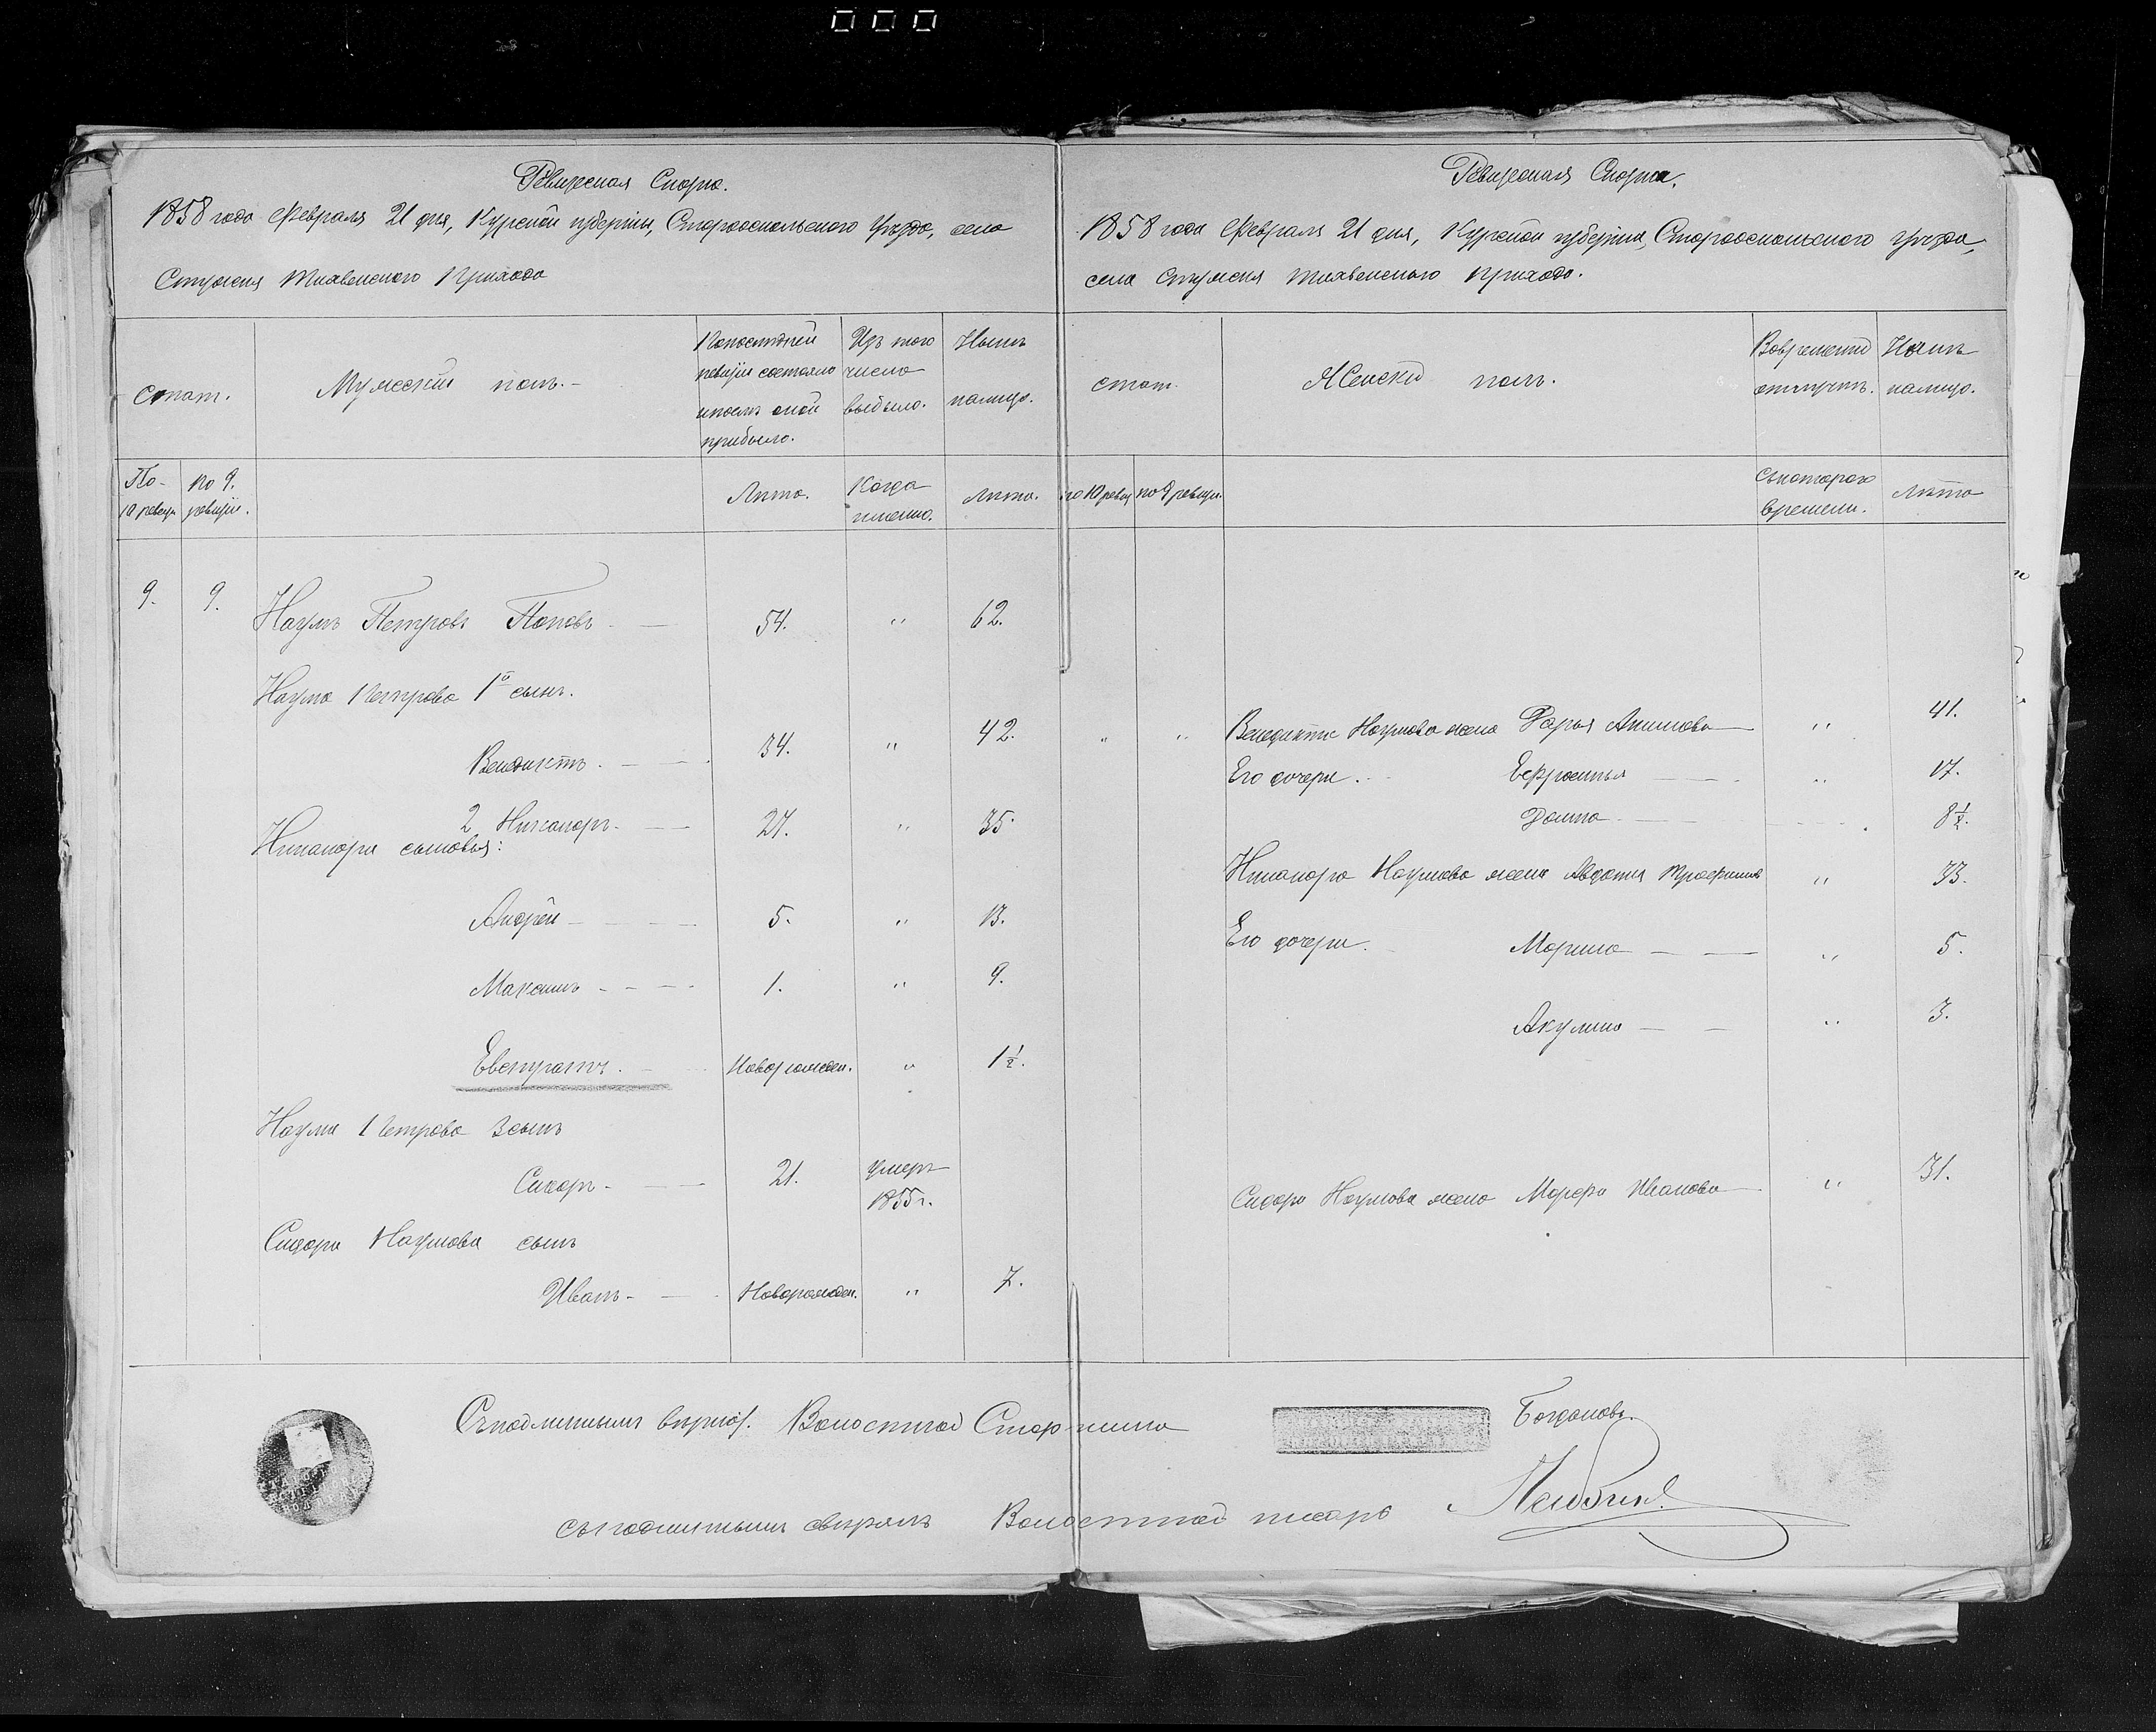 Ревизская Сказка.
1858 года Февраля 21 дня, Курской губернiи, Старооскольскаго Уезда, села
Стужня приxода
Стат.
Мужескiй полъ.
По последней
ревизiи состояло
и после оной
прибыло.
Изъ того
число
выбыло.
Ныне
налицо.
По-
10 ревизи
по 9.
ревизiи.
Лета.
Когда
именно.
Лета.
9.
9.
Наумъ Петровъ Поповъ 54. " 62.
Наума Петрова 1й сынъ.
Венедиктъ. 34. " 42.
2 Никаноръ. 27. " 35.
Никанора сыновья:
Андрей 5. " 13.
Максимъ 1. " 9.
Евстратъ. Новорожден. " 1½.
Наума Петрова 3 сынъ
Сидоръ 21. умеръ
1855 г.
Сидора Наумова сынъ
Иванъ Новорожден. " 7.
Ревизская Сказка.
1858 года Февраля 21 дня, Курской губернiи, Старооскольскаго уезда,
села Стужня приxода.
стат.
Женскiй полъ.
Во временной
отлучке.
Ныне
налицо.
по 10 ревиз
по 9 ревизи.
Съ котораго
времени.
Лета
" " Венедикта Наумова жена Дарья Акимова " 41.
Его дочери. Ефросинья " 17.
Домна 8½.
Никанора Наумова жена Авдотья Трофимов " 33.
Его дочери. Марина " 5.
Акулина " 3.
Сидора Наумова жена Марфа Иванова " 31.
Съ подлиннымъ верно: Волостной Старшина Богдановъ.
Съ подлиннымъ сверялъ Волостной писарь